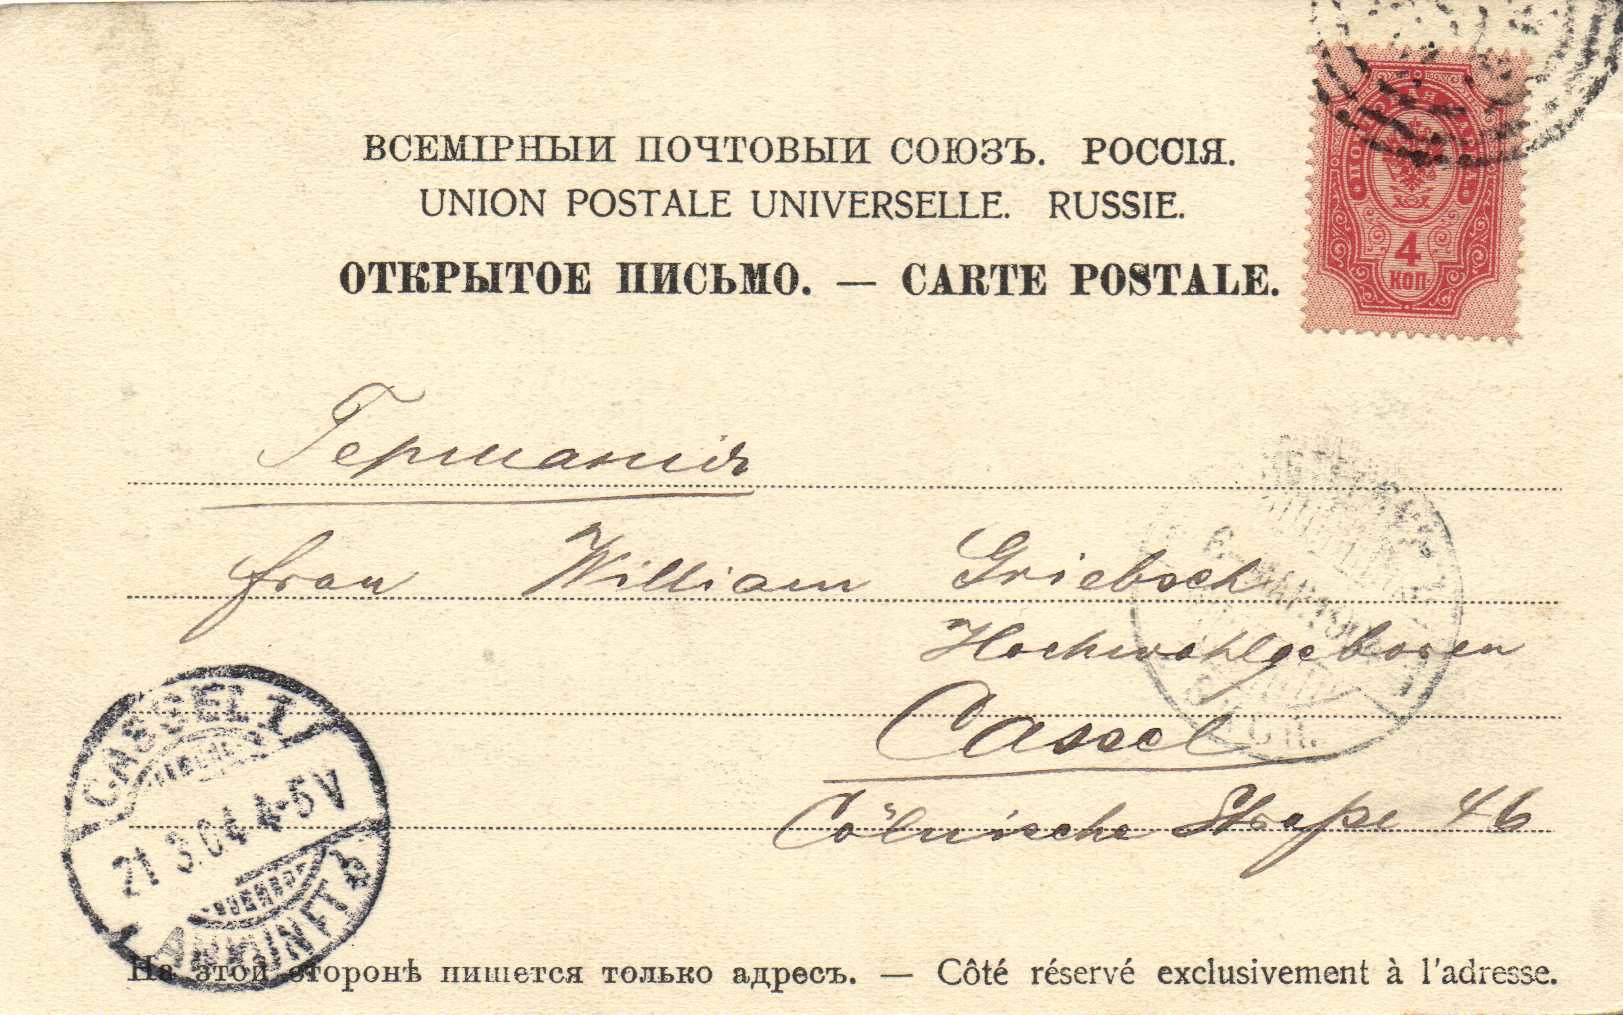 ВСЕМІРНЫЙ ПОЧТОВЫЙ СОЮЗЪ. РОССІЯ.
UNION POSTALE UNIVERSELLE. RUSSIE.
ОТКРЫТОЕ ПИСЬМО. — CARTE POSTALE.
4
КОП
Германія
Frau William Griebsch
Hochwohlgeboren
Cassel
Cölnische Straße 46
CASSEL 1
21 3.04 4-5 V
ANKUNFT
На этой сторонѣ пишется только адресъ. — Côté réservé exclusivement à l'adresse.